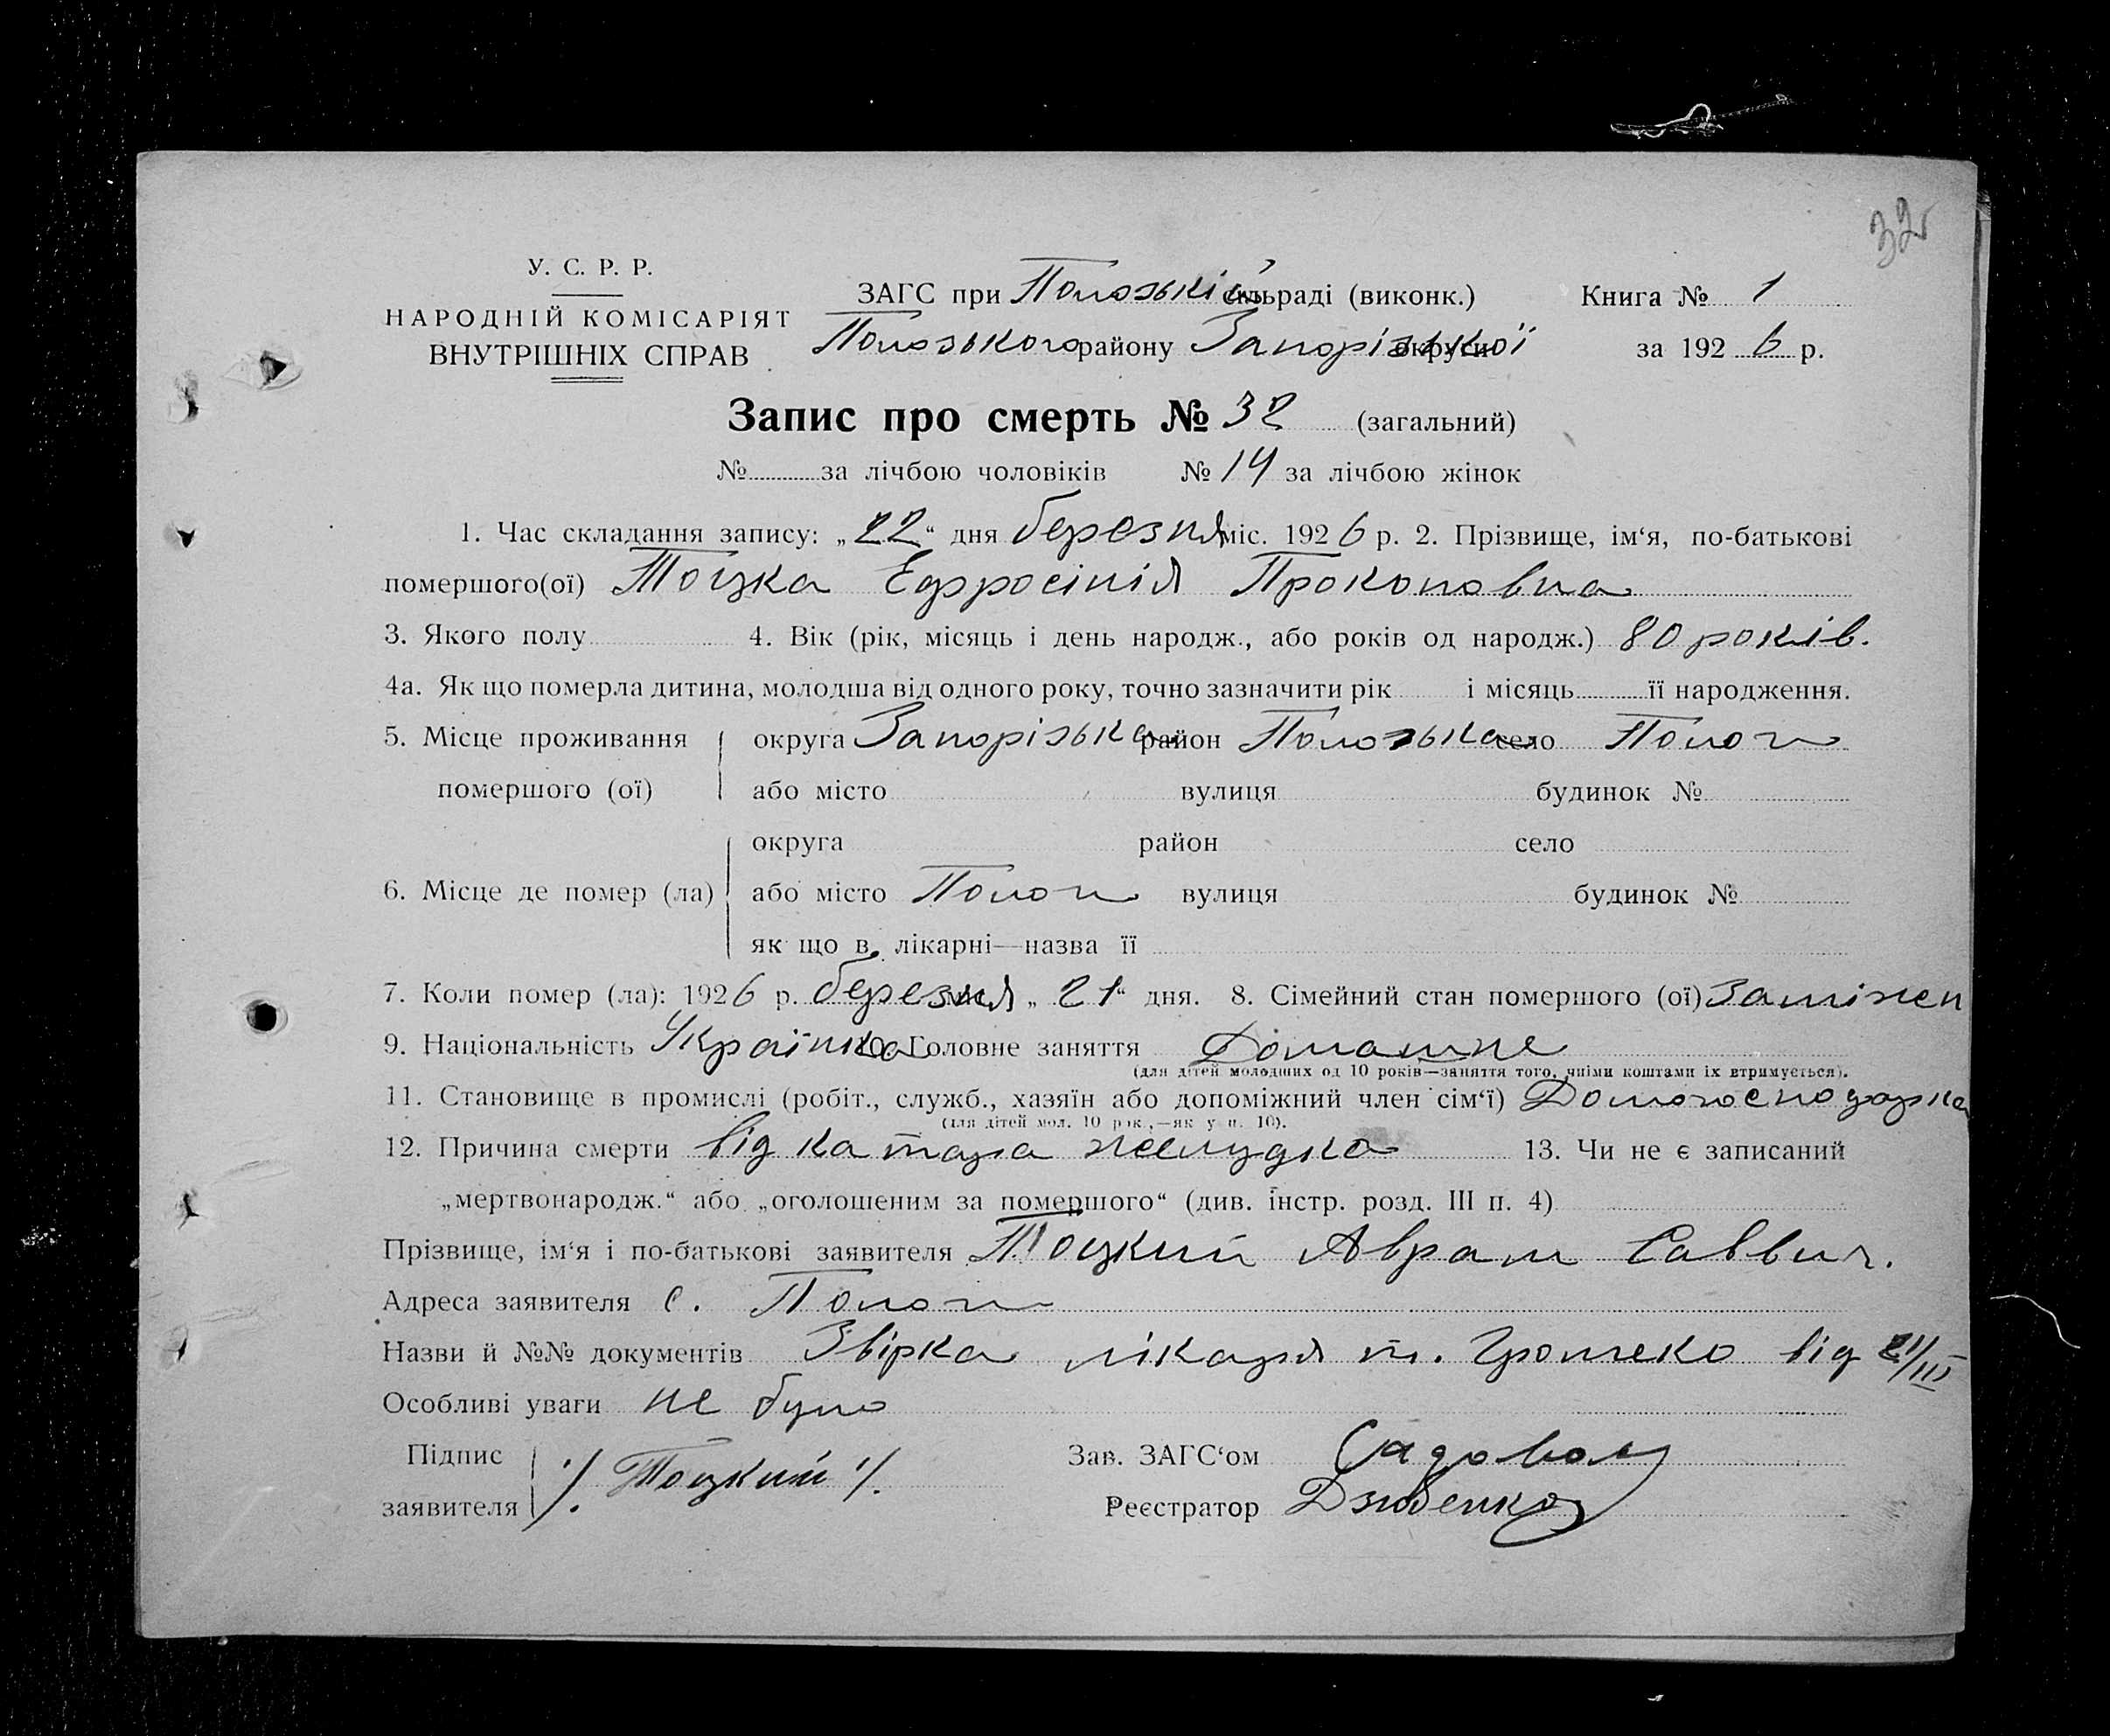 32
У. С. Р. Р.
НАРОДНІЙ КОМІСАРІЯТ
ВНУТРІШНІХ СПРАВ
ЗАГС при Пологській сільраді (виконк.) Книга № 1
Пологського району Запорізької округи за 1926 р.
Запис про смерть № 32 (загальний)
№ за лічбою чоловіків № 14 за лічбою жінок
1. Час складання запису: „22“ дня березня міс. 1926 р. 2. Прізвище, ім‘я, по-батькові
помершого(ої) Тоцка Ефросінія Прокоповна
3. Якого полу 4. Вік (рік, місяць і день народж., або років од народж.) 80 років.
4а. Як що померла дитина, молодша від одного року, точно зазначити рік і місяць її народження.
5. Місце проживання округа Запорізька район село Пологи
помершого (ої) або місто вулиця будинок №
округа район село
6. Місце де помер (ла) або місто Пологи вулиця будинок №
як що в лікарні—назва її
7. Коли помер (ла): 1926 р. березня „21“ дня. 8. Сімейний стан помершого (ої) Заміжен
9. Національність Українка 10. Головне заняття Домашнє
(для дітей молодших од 10 років—заняття того, чиїми коштами їх втримується).
11. Становище в промислі (робіт., служб., хазяїн або допоміжний член сім‘ї)
(для дітей мол. 10 рок.,—як у п. 10).
12. Причина смерти від катара желудка 13. Чи не є записаний
„мертвонародж.“ або „оголошеним за помершого“ (див. інстр. розд. III п. 4)
Прізвище, ім‘я і по-батькові заявителя Тоцкий Аврам Саввич.
Адреса заявителя с. Пологи
Назви й №№ документів лікаря т. від 21/III
Особливі уваги не було
Підпис Зав. ЗАГС‘ом
заявителя ./. Тоцкий ./. Реєстратор